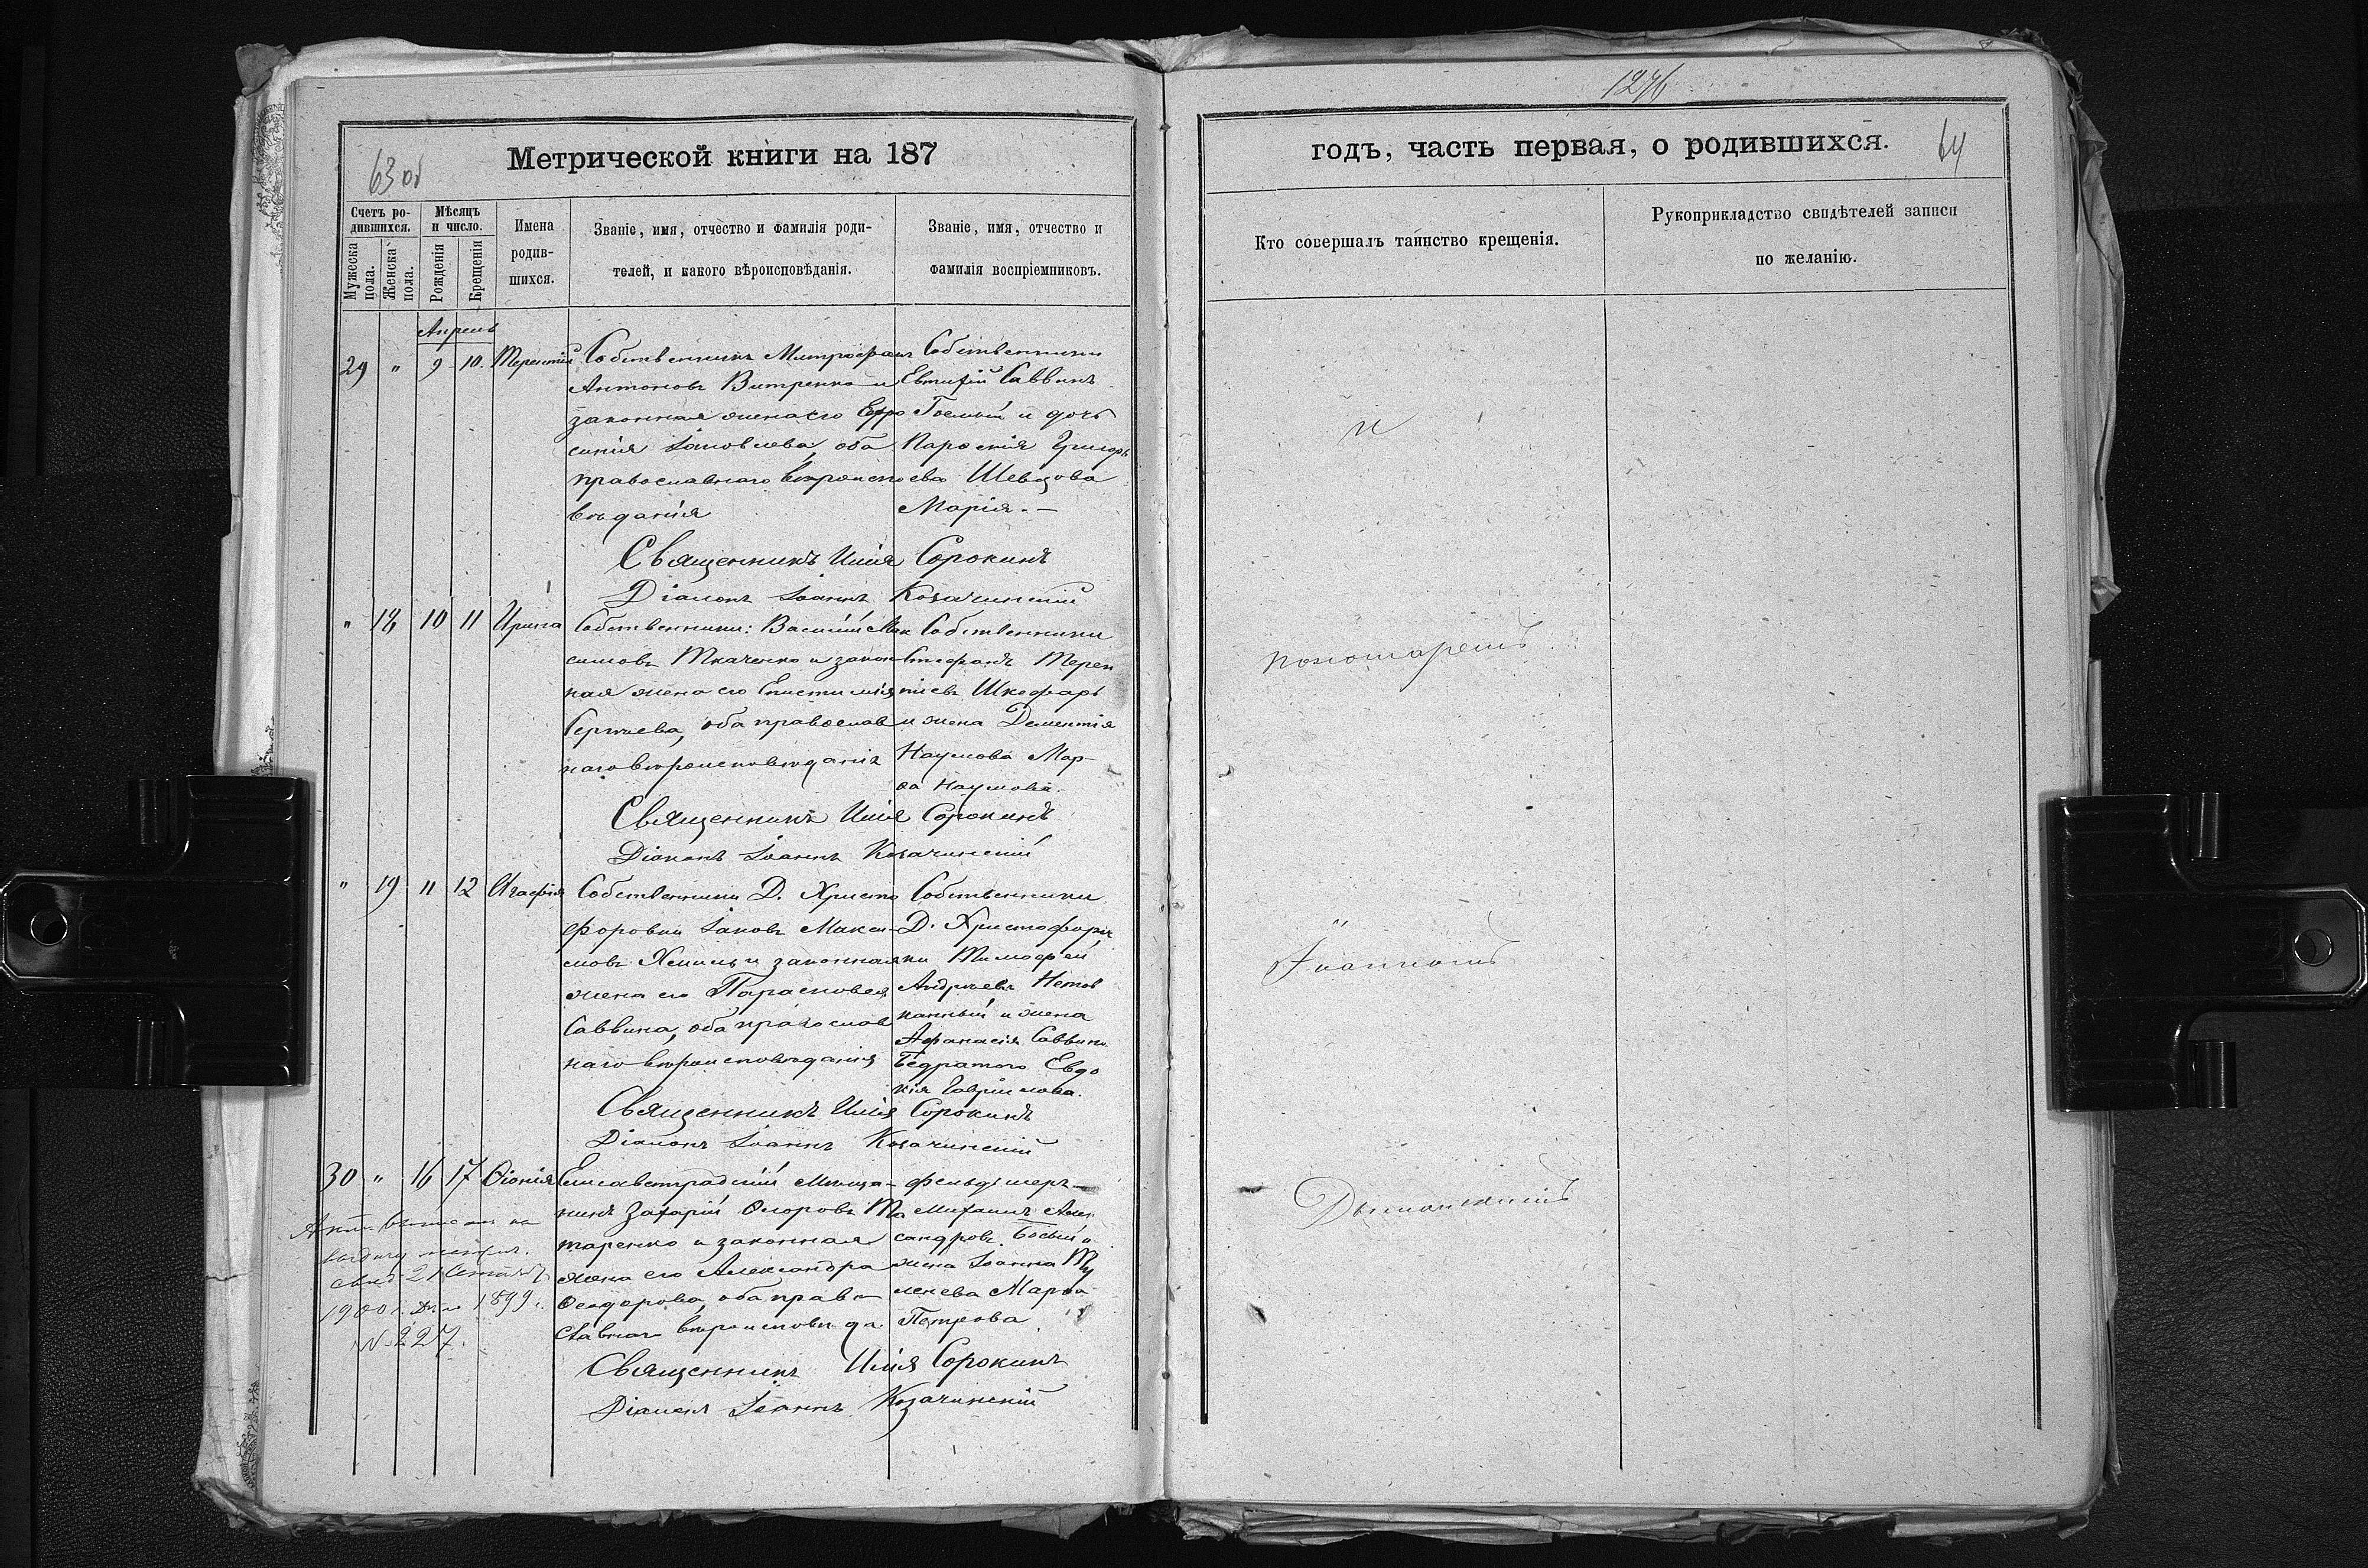 63 об
Метрической книги на 187
Счетъ ро-
дившихся.
Мѣсяцъ
и число.
Мужеска
пола.
Женска
пола.
Рожденія
Крещенія
Имена
родив-
шихся.
Званіе, имя, отчество и фамилія роди-
телей, и какого вѣроисповѣданія.
Званіе, имя, отчество и
фамилія воспріемниковъ.
Апрель
29 " 9 10. Терентій
Собственникъ Митрофанъ
Антоновъ Витренко и
законная жена его Ефро
синія Іаковлева, оба
православнаго вѣроиспо
вѣданія
Собственники
Евтифій Саввинъ
и дочь
Григорь
ева Шевцова
Марія. —
Священникъ Илія Сорокинъ
Діаконъ Іоаннъ Козачинскій
" 18 10 11 Ирина
Собственники: Василій Мак
симовъ Ткаченко и закон
ная жена его Епистимія
Сергіева, оба православ
наго вѣроисповѣданія
Собственники
Стефанъ Терен
тіевъ
и жена Дементія
Наумова Мар-
ѳа Наумова.
Священникъ Илія Сорокинъ
Діаконъ Іоаннъ Козачинскій
" 19 11 12 Агафія
Собственники Д. Христо
форовки Іаковъ Макси-
мовъ Хмиль и законная
жена его Парасковея
Саввина, оба православ
наго вѣроисповѣданія
Собственники
Д. Христофоров
ки Тимофей
Андреевъ
и жена
Афанасія Саввина
Бедратого Евдо
кія Гавриилова.
Священникъ Илія Сорокинъ
Діаконъ Іоаннъ Козачинскій
30 " 16 17 Ѳіонія
Елисаветградскій мѣща-
нинъ Захарій Ѳедоровъ Та
таренко и законная
жена его Александра
Ѳеодорова, оба право
славнаго вѣроисповѣда
фельдшеръ
Михаилъ Алек
сандровъ и
жена Іоанна
Марѳа
Петрова
выдачу метрич.
1900 г. 1899 г.
№ 227.
Священникъ Илія Сорокинъ
Діаконъ Іоаннъ Козачинскій
1276
годъ, часть первая, о родившихся.
64
Кто совершалъ таинство крещенія.
Рукоприкладство свидѣтелей записи
по желанію.
и
пономаремъ
"
Іоанномъ